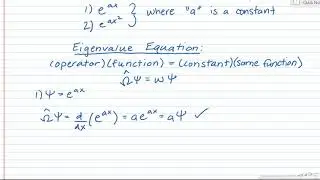 1) e^{ax}
2) e^{ax²} } where "a" is a constant
Eigenvalue Equation:
(operator)(function) = (constant)(same function)
Ω̂Ψ = ωΨ
1) Ψ = e^{ax}
Ω̂Ψ = d/dx (e^{ax}) = ae^{ax} = aΨ ✓